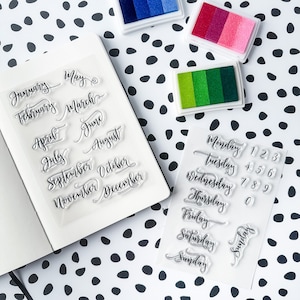 January May
February March
April June
July August
September October
November December
Monday 1 2 3
Tuesday 4 5 6
Wednesday 7 8 9
Thursday 0
Friday
Saturday
Sunday